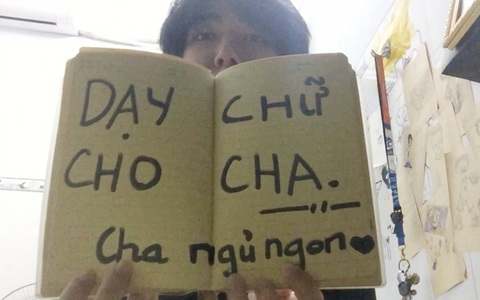 DẠY CHỮ
CHO CHẠ.
Cha ngủ ngon